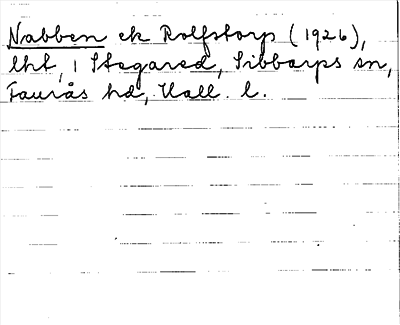 Nabben ek Rolfstorp (1926),
lht, 1 Stegared, Sibbarps sn,
Faurås hd, Hall. l.